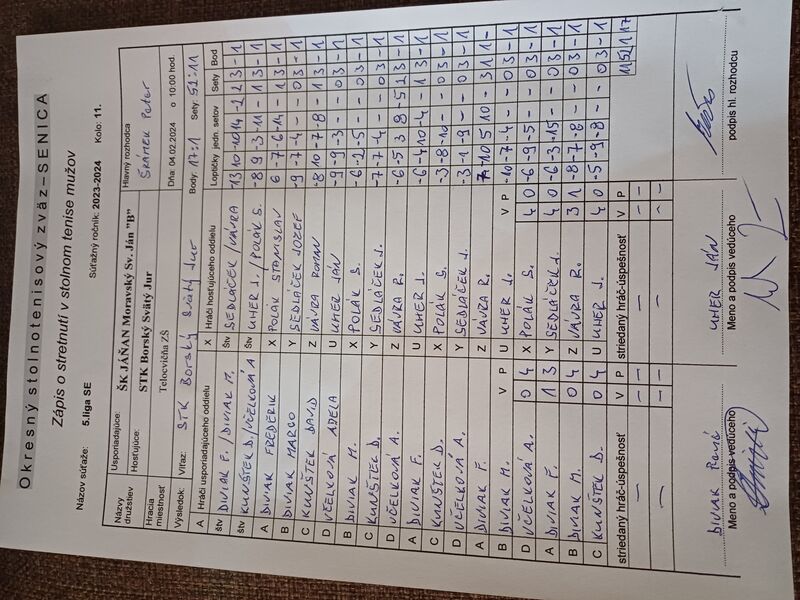 Okresný stolnotenisový zväz – SENICA
Zápis o stretnutí v stolnom tenise mužov
Názov súťaže: 5.liga SE Súťažný ročník: 2023-2024 Kolo: 11.
Názvy družstiev Usporiadajúce: ŠK JÁŇAN Moravský Sv. Ján "B" Hlavný rozhodca
Hosťujúce: STK Borský Svätý Jur ŠRÁMEK Peter
Hracia miestnosť Telocvičňa ZŠ Dňa: 04.02.2024 o 10:00 hod.
Výsledok: Víťaz: STK Borský Svätý Jur Body: 17:1 Sety: 52:11
A Hráči usporiadajúceho oddielu X Hráči hosťujúceho oddielu Loptičky jedn. setov Sety Bod
štv DIVIAK F. / DIVIAK M. štv SEDLÁČEK / VÁVRA
štv KUNŠTEK D. / VČELKOVÁ A štv UHER J. / POLÁK S.
A DIVIAK FREDERIK X POLÁK STANISLAV
B DIVIAK MARCO Y SEDLÁČEK JOZEF -9 -7 -4 - - 0 3 -1
C KUNŠTEK DAVID Z VÁVRA ROMAN -8 10 -7 -8 - 1 3 -1
D VČELKOVÁ ADELA U UHER JÁN -9 -9 -3 - - 0 3 -1
B DIVIAK M. X POLÁK S. -6 -2 -5 - - 0 3 -1
C KUNŠTEK D. Y SEDLÁČEK J. -7 -7 -4 - - 0 3 -1
D VČELKOVÁ A. Z VÁVRA R.
A DIVIAK F. U UHER J.
C KUNŠTEK D. X POLÁK S. -3 -8 -10 - - 0 3 -1
D VČELKOVÁ A Y SEDLÁČEK J. -3 -1 -9 - - 0 3 -1
A DIVIAK F. Z VÁVRA R.
B DIVIAK M. V P U UHER J. V P -10 -7 -4 - - 0 3 -1
D VČELKOVÁ A. 0 4 X POLÁK S. 4 0 -6 -9 -5 - - 0 3 -1
A DIVIAK F. 1 3 Y SEDLÁČEK J. 4 0 -6 -3 -15 - - 0 3 -1
B DIVIAK M. 0 4 Z VÁVRA R. 3 1 -8 -7 -8 - - 0 3 -1
C KUNŠTEK D. 0 4 U UHER J. 4 0 -5 -9 -8 - - 0 3 -1
striedaný hráč-úspešnosť V P striedaný hráč-úspešnosť V P 11 52 1 17
DIVIAK René UHER JÁN
Meno a podpis vedúceho Meno a podpis vedúceho podpis hl. rozhodcu